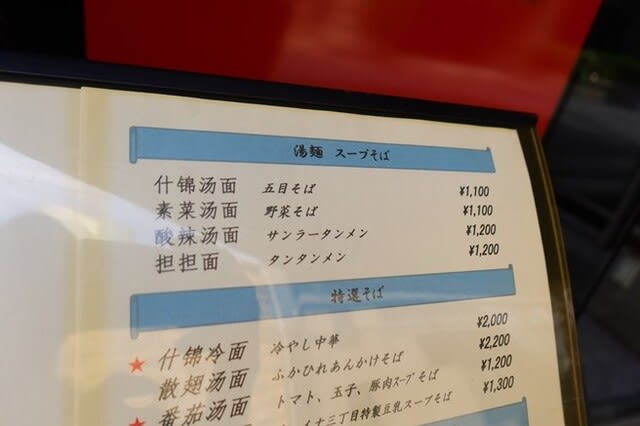 湯麺 スープそば
什锦汤面 五目そば ¥1,100
素菜汤面 野菜そば ¥1,100
酸辣汤面 サンラータンメン ¥1,200
担担面 タンタンメン ¥1,200
特選そば
★ 什锦冷面 冷やし中華 ¥2,000
散翅汤面 ふかひれあんかけそば ¥2,200
★ 番茄汤面 トマト、玉子、豚肉スープそば ¥1,200
イナ三丁目特製豆乳スープそば ¥1,300